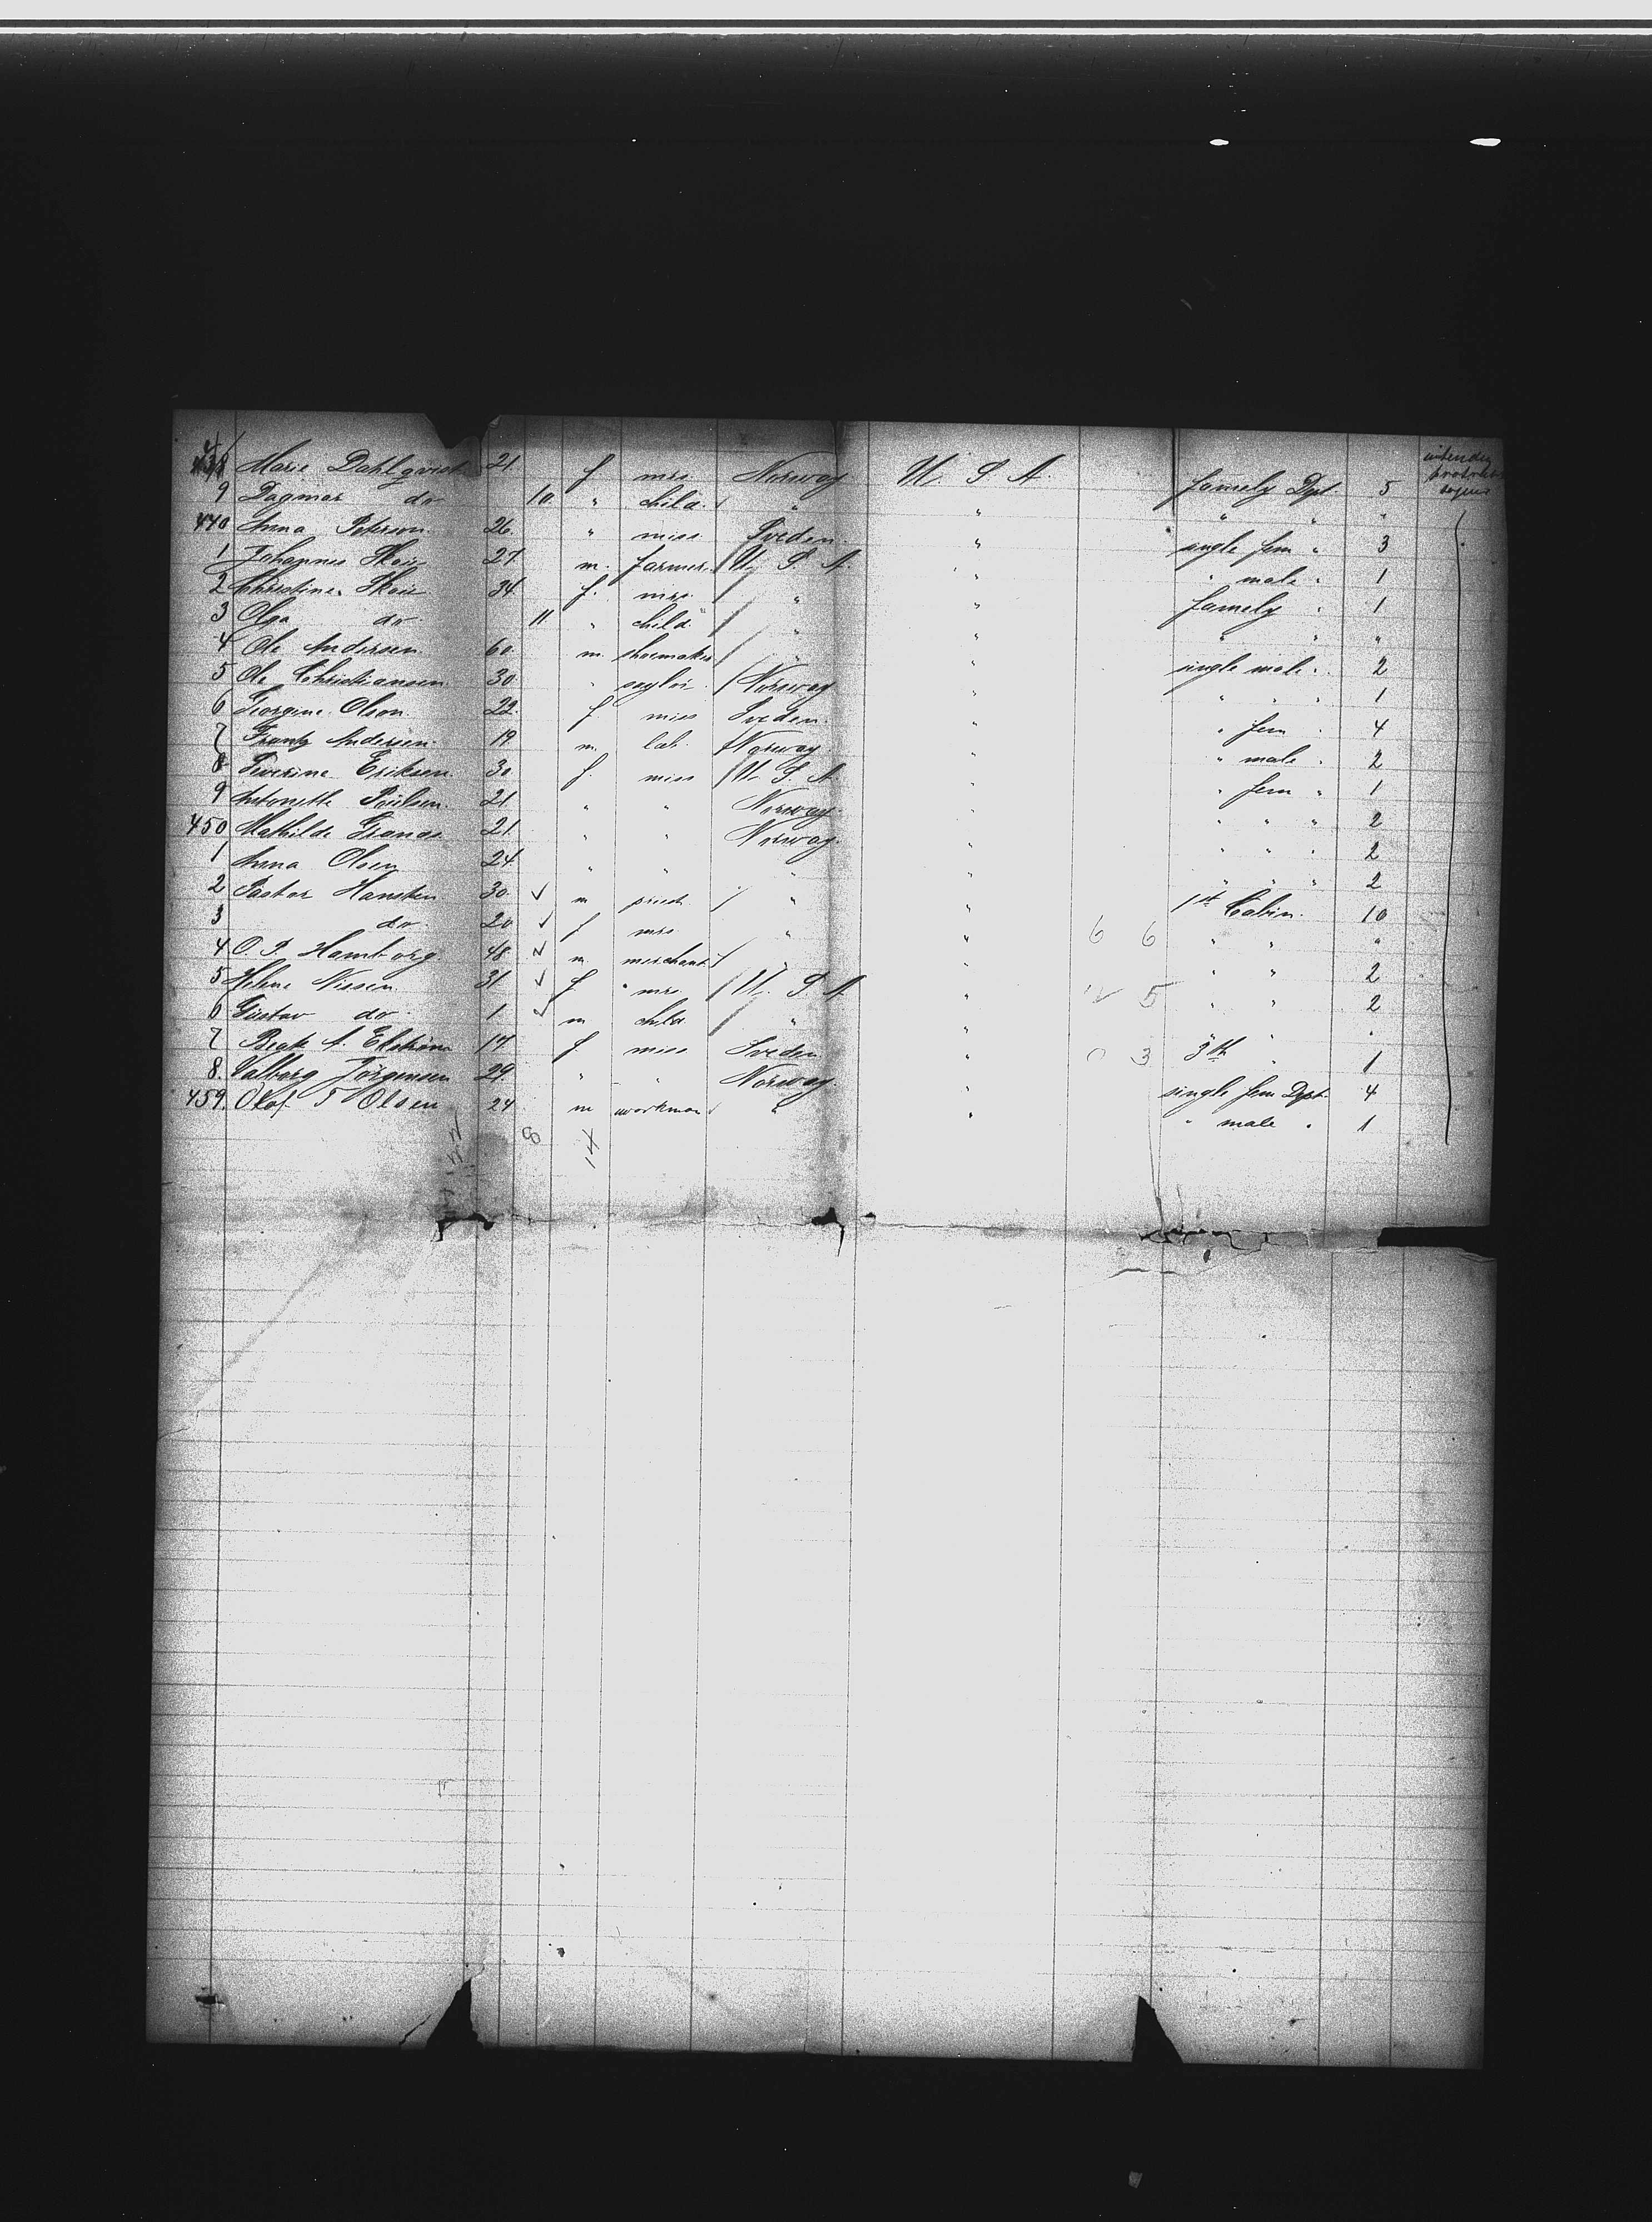 intended
438 Marie Dahlqvist 21 f mrs Norway U. S. A. famely Dpt. 5
9 Dagmar do 10 " child " " " " "
440 Anna Peterson 26 " miss Sveden " single fem " 3
1 Johannes 27 m. farmer U. S. A. " " male " 1
2 Christine 34 f. mrs. " " famely " 1
3 Olga do 11 " child " " " " "
4 Ole Andersen 60 m. shoemaker " " single male " 2
5 Ole Christiansen 30 " saylor Norway " " " " 1
6 Georgine Olson 22 f miss Sveden " " fem " 4
7 Frantz Andersen 19 m. lab. Norway " " male " 2
8 Severine Eriksen 30 f. miss U. S. A. " " fem " 1
9 Antonette Poulsen 21 " " Norway " " " " 2
450 Mathilde 21 " " Norway " " " " 2
1 Anna Olsen 24 " " " " " " " 2
2 Pastor Hansten 30 ✓ m priest " " 1st Cabin 10
3 do 20 ✓ f mrs " " 6 6 " " "
4 O. P. Hamborg 48 ✓ m merchant " " " " 2
5 Helene Nissen 31 ✓ f. " mrs. U. S. A. " 5 " " 2
6 Gustav do 1 ✓ m child " " " " "
7 Beate A. Ekström 17 f. miss Sveden " 0 3 3th " 1
8. Valborg Jörgensen 29. " " Norway " single fem Dept. 4
459. Olaf T Olsen 24 m workman " " " male " 1
8 14